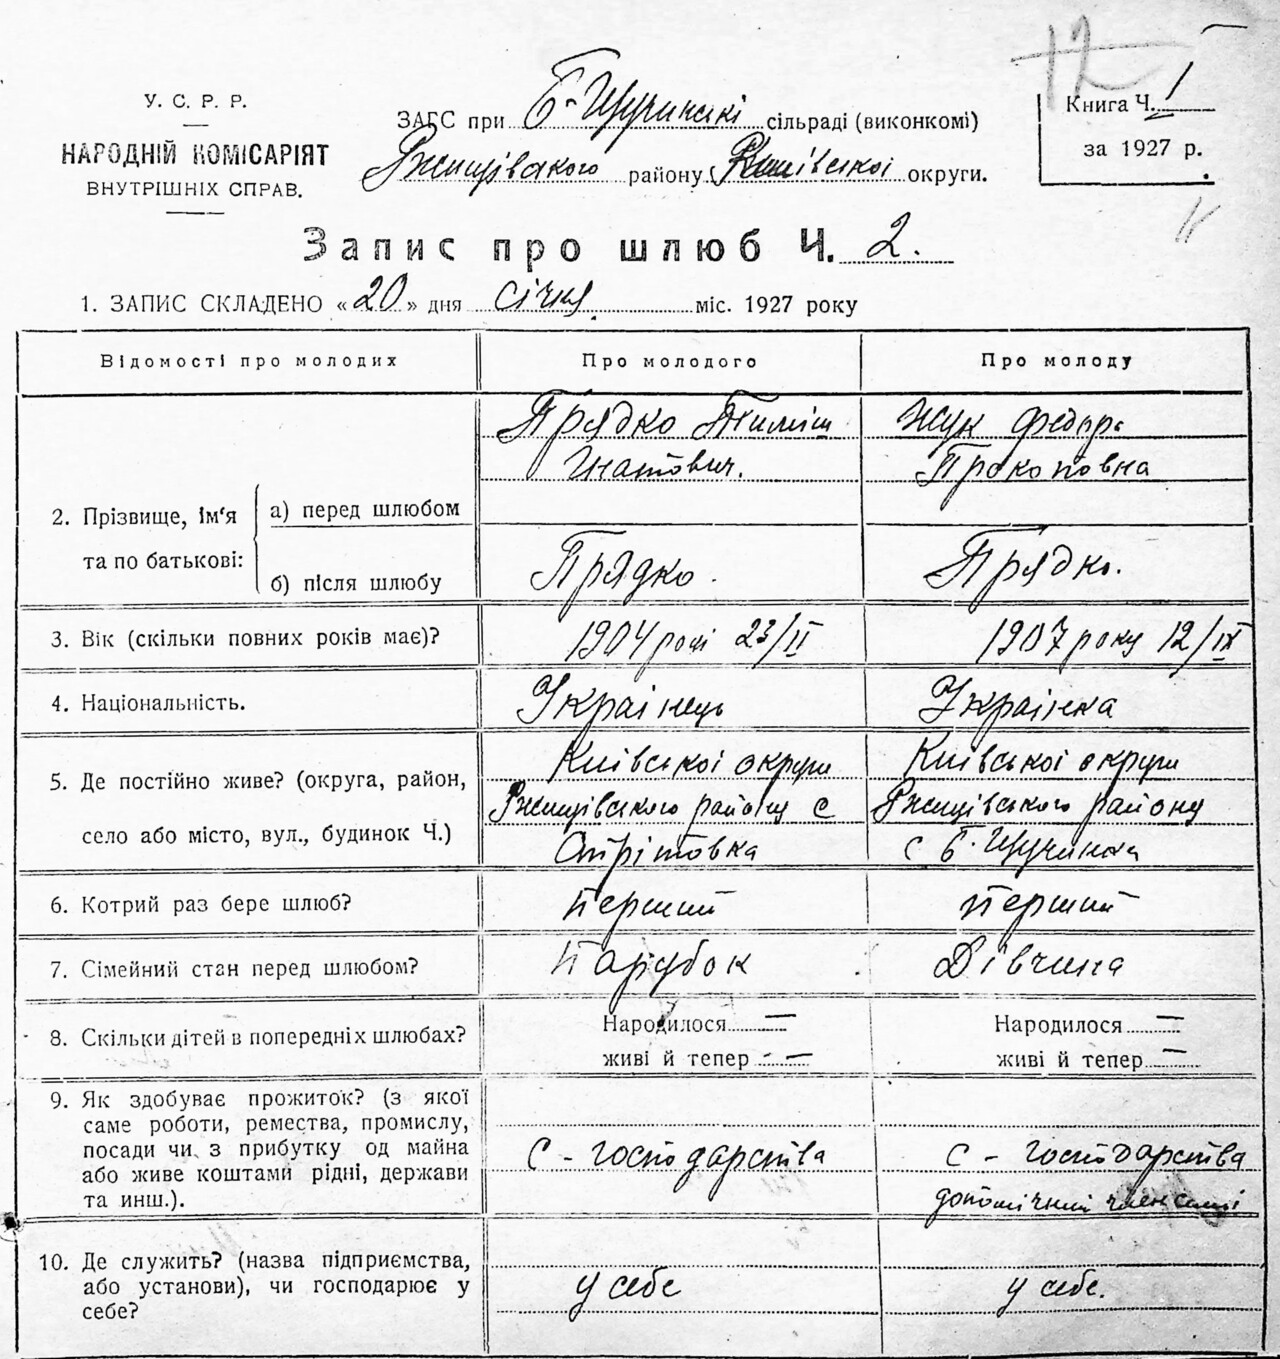 12
У. С. Р. Р.
НАРОДНІЙ КОМІСАРІЯТ
ВНУТРІШНІХ СПРАВ.
ЗАГС при Б-Щучинскі сільраді (виконкомі)
Ржищівского району Київської округи.
Книга Ч. 1
за 1927 р.
Запис про шлюб Ч. 2.
1. ЗАПИС СКЛАДЕНО «20» дня січня міс. 1927 року
Відомості про молодих
Про молодого
Про молоду
2. Прізвище, ім'я
та по батькові:
а) перед шлюбом
Прядко Тиміш
Гнатович.
Жук Федора
Прокоповна
б) після шлюбу
Прядко.
Прядко.
3. Вік (скільки повних років має)?
1904 році 23/II
1907 року 12/IX
4. Національність.
Українець
Українка
5. Де постійно живе? (округа, район,
село або місто, вул., будинок Ч.)
Київської округи
Ржищівского району с
Стрітовка
Київської округи
Ржищівського району
с Б-Щучинка
6. Котрий раз бере шлюб?
Перший
Перший
7. Сімейний стан перед шлюбом?
Парубок
Дівчина
8. Скільки дітей в попередніх шлюбах?
Народилося —
живі й тепер —
Народилося —
живі й тепер —
9. Як здобуває прожиток? (з якої
саме роботи, ремества, промислу,
посади чи з прибутку од майна
або живе коштами рідні, держави
та инш.).
с - господарства
с - господарства
допомічний член семї
10. Де служить? (назва підприємства,
або установи), чи господарює у
себе?
у себе
у себе.